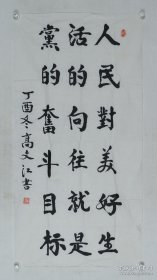 人民對美好生
活的向往就是
黨的奮斗目标
丁酉冬高文江書